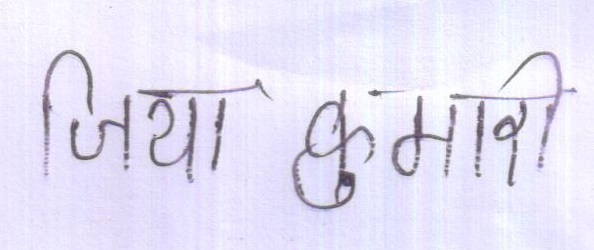 जिया कुमारी